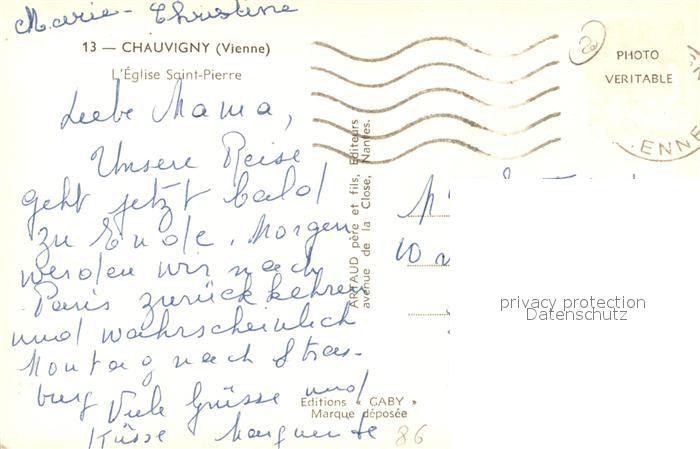 Marie-Christine
13 — CHAUVIGNY (Vienne)
L'Église Saint-Pierre
Liebe Mama,
Unsere Reise
geht jetzt bald
zu Ende. Morgen
werden wir nach
Paris zurückkehren
und wahrscheinlich
Montag nach Stras-
burg Viele Grüsse und
Küsse Marguerite
ARTAUD père et fils, Editeurs
avenue de la Close, Nantes.
Editions « GABY »
Marque déposée
86
PHOTO
VERITABLE
ENNE
10
privacy protection
Datenschutz